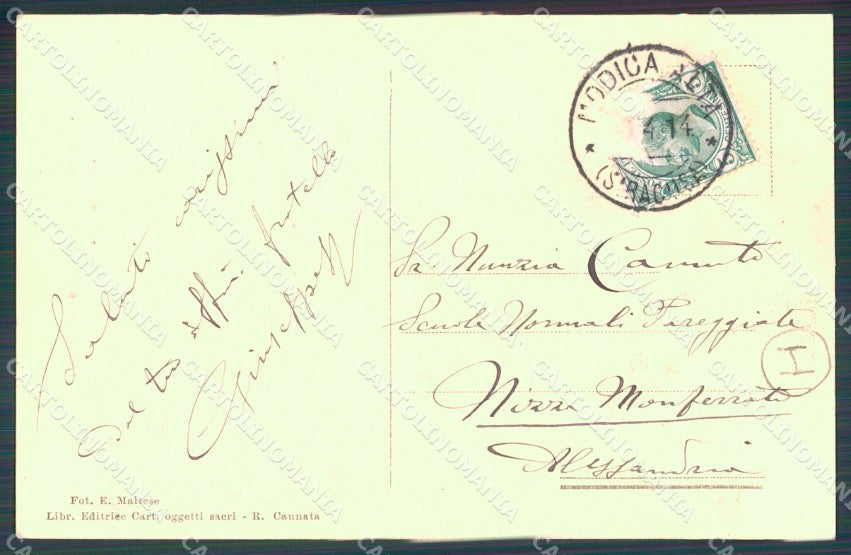 Saluti carissimi
Dal tuo aff.mo fratello
Giuseppe
Fot. E. Maltese
Libr. Editrice Cart. oggetti sacri - R. Cannata
MODICA
4 14
(SIRACUSA)
Nunzia Cannata
Scuole Normali Pareggiate
Nizza Monferrato
Alessandria
H
CARTOLINOMANIA